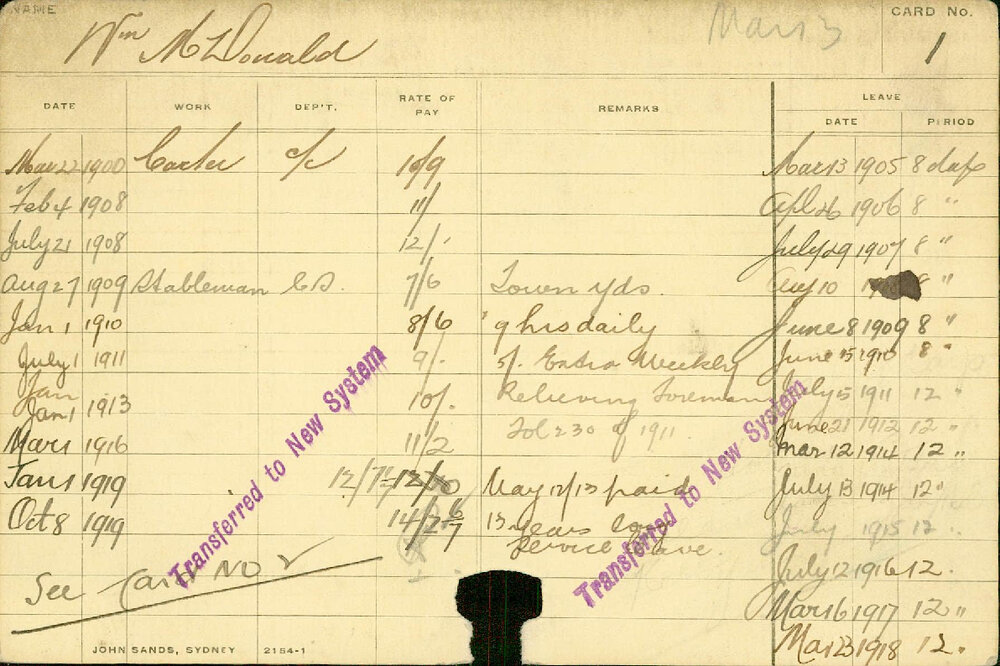 NAME
Wm McDonald
Mar 13
CARD No.
1
DATE WORK DEP'T. RATE OF PAY REMARKS LEAVE
DATE PERIOD
Mar 22 1900 Carter c/c 10/9 Mar 13 1905 8 days
Feb 4 1908 11/ Apl 26 1906 8 "
July 21 1908 12/. July 29 1907 8 "
Aug 27 1909 Stableman C.D. 7/6 Town Yds. Aug 10 8 "
Jan 1 1910 8/6 9 hrs daily June 8 1909 8 "
July 1 1911 9/. 5/. Extra Weekly June 15 1910 8 "
Jan
Jan 1 1913 10/. Relieving Foreman July 5 1911 12 "
Mar 1 1916 11/2 Fol 230 of 1911 June 21 1912 12 "
Mar 12 1914 12 "
Jan 1 1919 12/7 May 12/13 paid July 13 1914 12 "
Oct 8 1919 14/2 13 years long July 1915 12 "
Service Leave.
See Card No 2
July 12 1916 12 "
Mar 16 1917 12 "
Mar 23 1918 12 "
Transferred to New System
Transferred to New System
JOHN SANDS, SYDNEY 2154-1